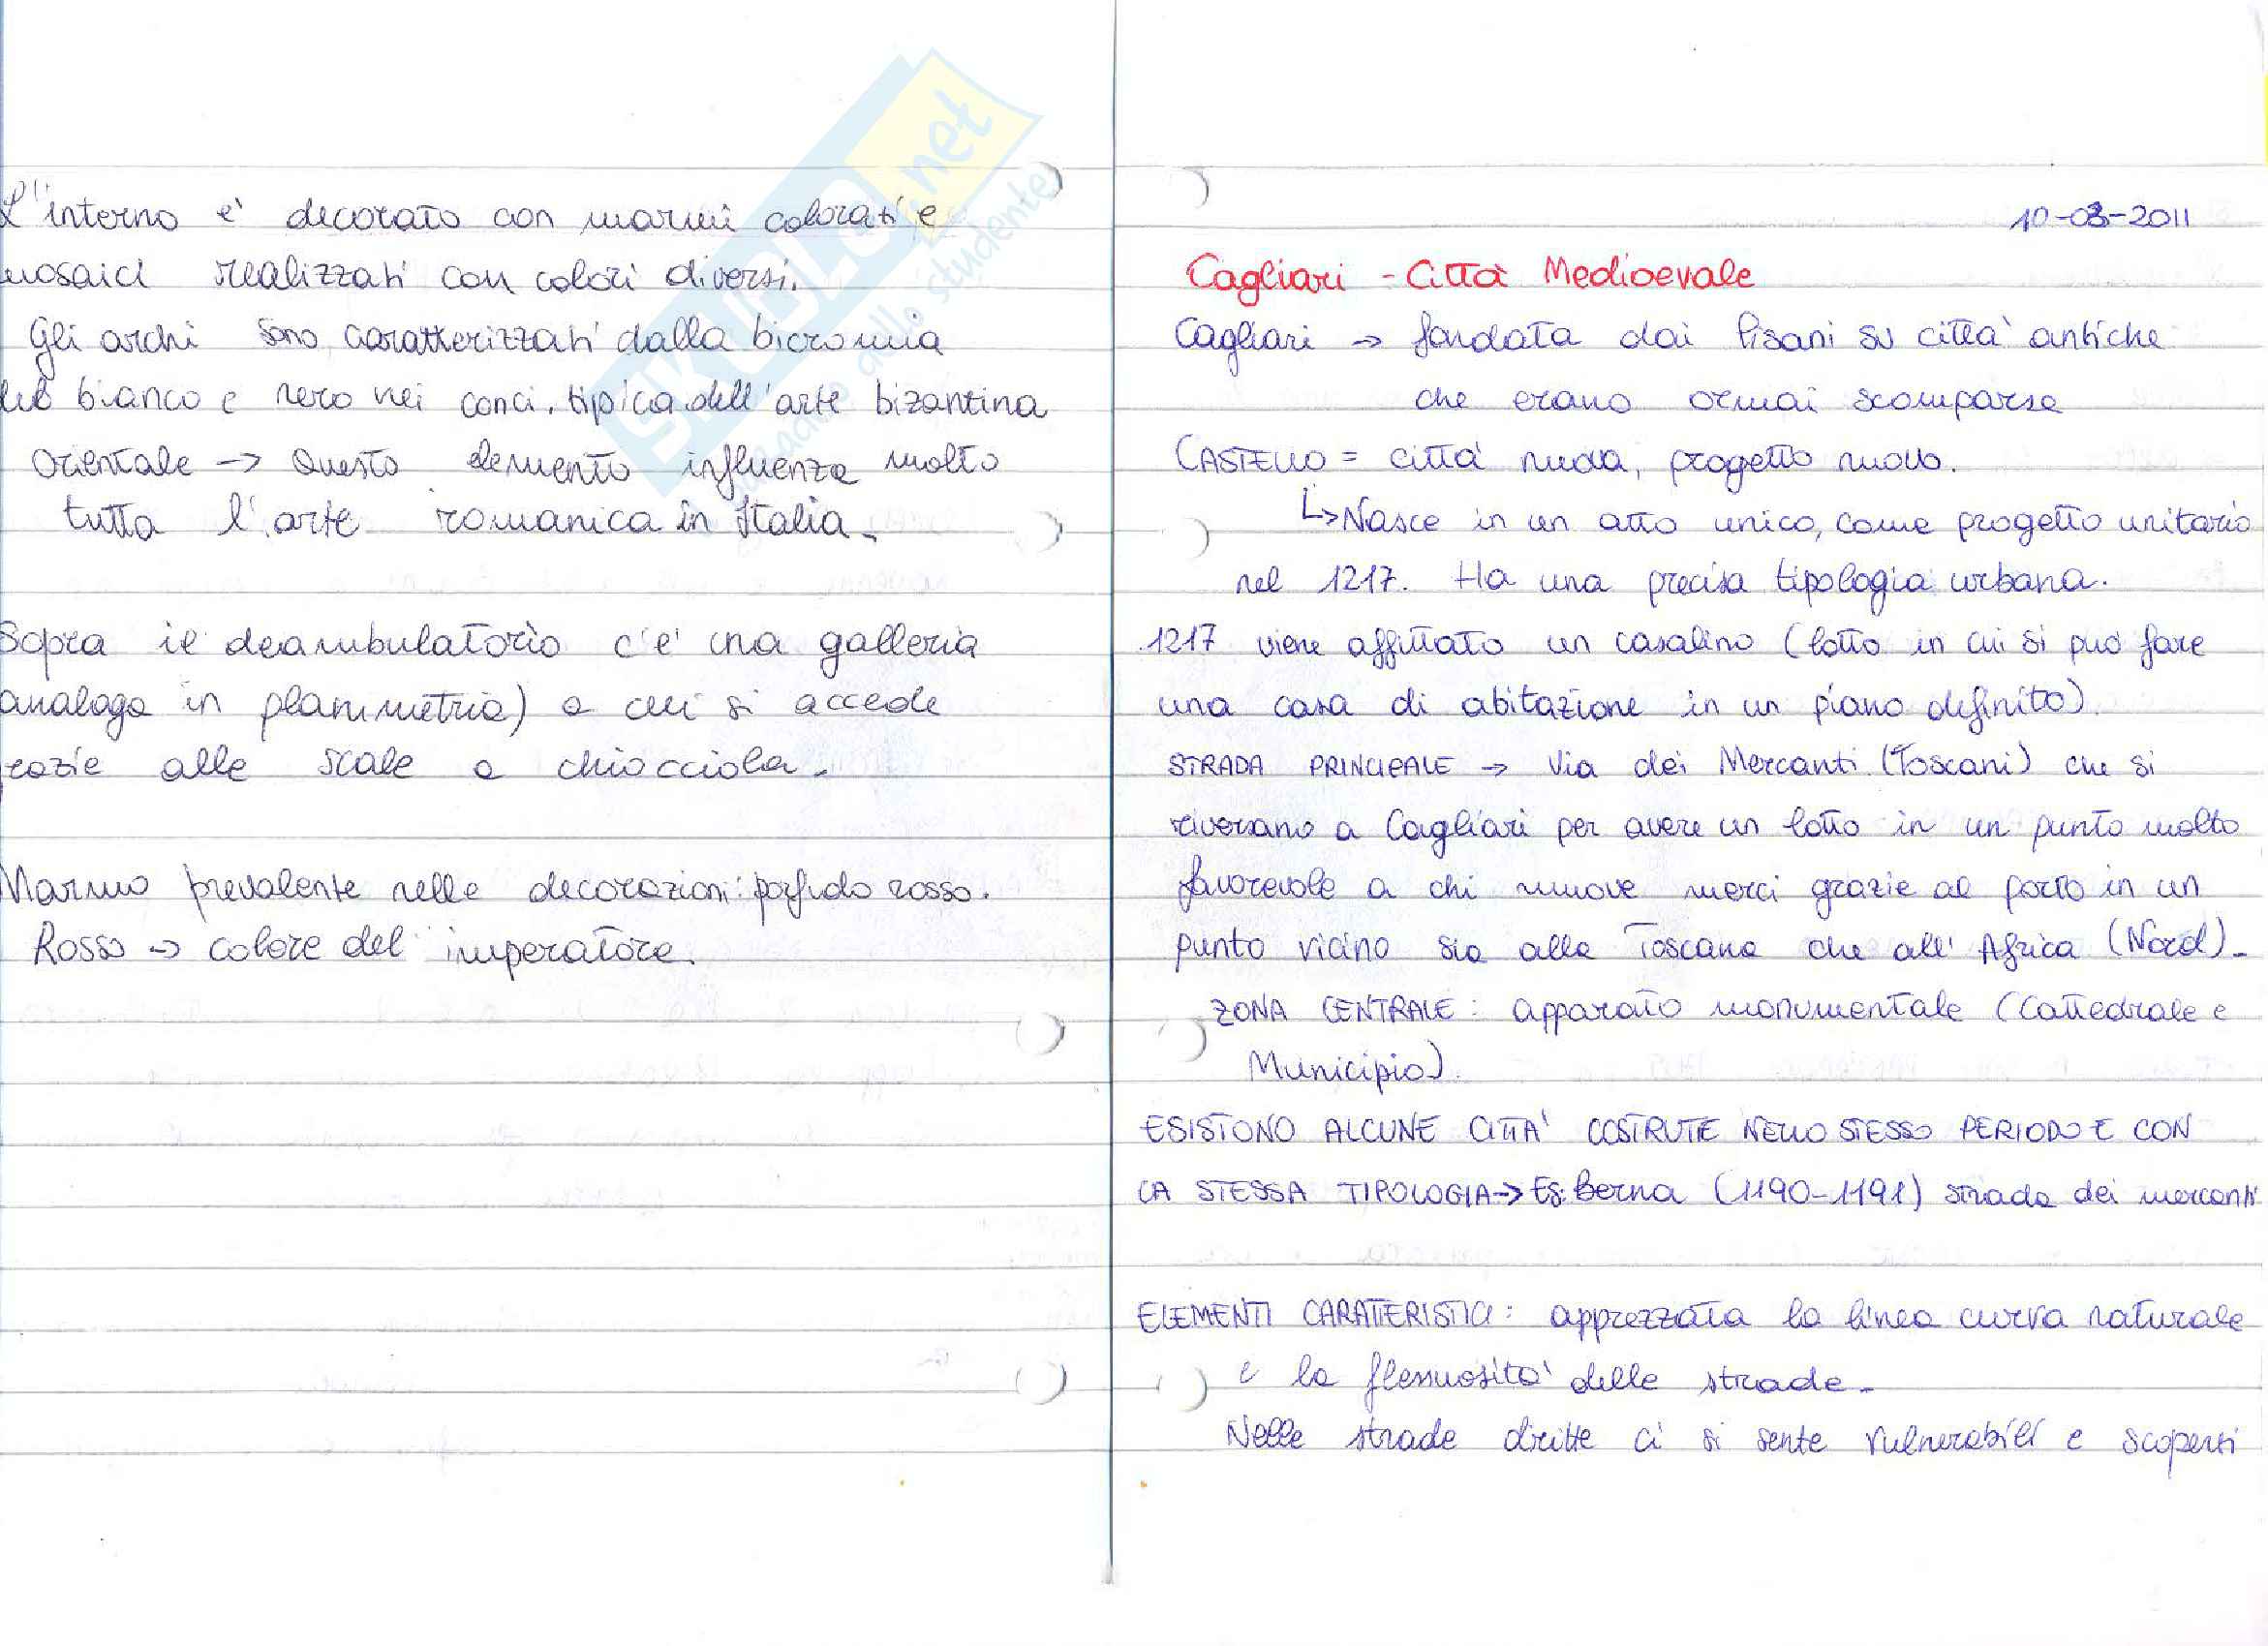 L'interno e' decorato con marmi colorati e
mosaici realizzati con colori diversi.
Gli archi sono caratterizzati dalla bicromia
del bianco e nero nei conci, tipica dell'arte bizantina
Orientale → Questo elemento influenza molto
tutta l'arte romanica in Italia.
Sopra il deambulatorio c'e' una galleria
analoga in planimetria) a cui si accede
razie alle scale a chiocciola.
Marmo prevalente nelle decorazioni: porfido rosso.
Rosso → colore del imperatore.
SKUOLA.net
10-03-2011
Cagliari - Città Medioevale
Cagliari → fondata dai Pisani su citta' antiche
che erano ormai scomparse
CASTELLO = citta' nuova, progetto nuovo.
↳ Nasce in un atto unico, come progetto unitario
nel 1217. Ha una precisa tipologia urbana.
1217 viene affittato un casalino (lotto in cui si puo' fare
una casa di abitazione in un piano definito).
STRADA PRINCIPALE → Via dei Mercanti (Toscani) che si
riversano a Cagliari per avere un lotto in un punto molto
favorevole a chi muove merci grazie al porto in un
punto vicino sia alla Toscana che all'Africa (Nord).
ZONA CENTRALE: apparato monumentale (Cattedrale e
Municipio).
ESISTONO ALCUNE CITTA' COSTRUTE NELLO STESSO PERIODO E CON
LA STESSA TIPOLOGIA → Es: Berna (1190-1191) strada dei mercanti
ELEMENTI CARATTERISTICI: apprezzata la linea curva naturale
e la flessuosita' delle strade.
Nelle strade diritte ci si sente vulnerabili e scoperti